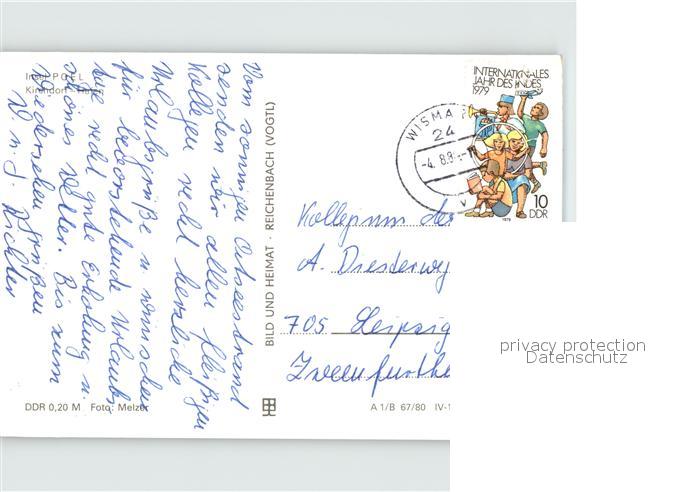 Insel POEL
Kirchdorf - Hafen
Vom sonnigen Ostseestrand
senden wir allen fleißigen
Kollegen recht herzliche
Urlaubsgrüße u. wünschen
für bevorstehende Urlaubs
tage recht gute Erholung u.
schönes Wetter. Bis zum
Wiedersehen grüßen
W. u. J. Richter
DDR 0,20 M Foto: Melzer
BILD UND HEIMAT · REICHENBACH (VOGTL)
A 1/B 67/80 IV-1
INTERNATIONALES
JAHR DES KINDES
1979
10
DDR
1979
WISMA
24
-4. 8.8
Kollegium der
A. Diesterweg
705 Leipzig
Zweenfurther
privacy protection
Datenschutz